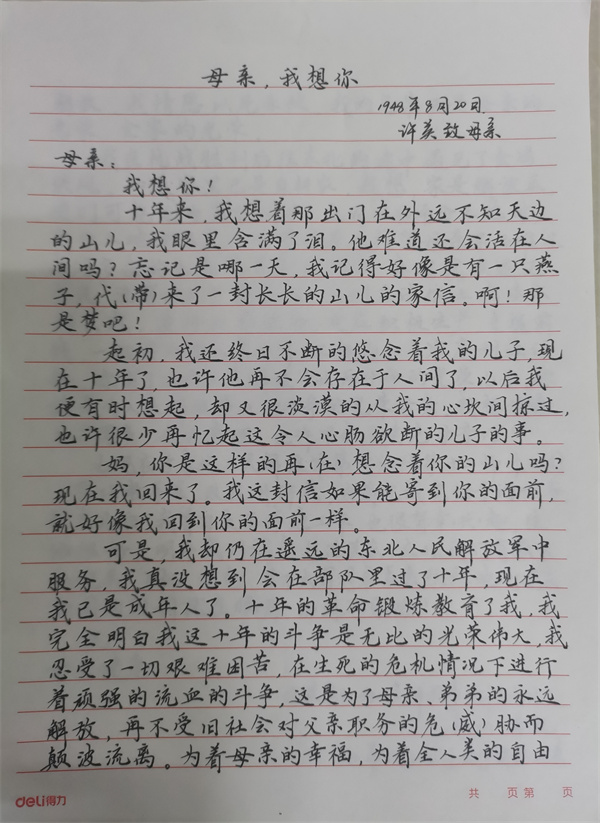 母亲，我想你
1948年8月20日
许英致母亲
母亲：
我想你！
十年来，我想着那出门在外远不知天边
的山儿，我眼里含满了泪。他难道还会活在人
间吗？忘记是哪一天，我记得好像是有一只燕
子，代（带）来了一封长长的山儿的家信。啊！那
是梦吧！
起初，我还终日不断的悠念着我的儿子，现
在十年了，也许他再不会存在于人间了，以后我
便有时想起，却又很淡漠的从我的心坎间掠过，
也许很少再忆起这令人心肠欲断的儿子的事。
妈，你是这样的再（在）想念着你的山儿吗？
现在我回来了。我这封信如果能寄到你的面前，
就好像我回到你的面前一样。
可是，我却仍在遥远的东北人民解放军中
服务，我真没想到会在部队里过了十年，现在
我已是成年人了。十年的革命锻炼教育了我，我
完全明白我这十年的斗争是无比的光荣伟大，我
忍受了一切艰难困苦，在生死的危机情况下进行
着顽强的流血的斗争，这是为了母亲、弟弟的永远
解放，再不受旧社会对父亲职务的危（威）胁而
颠波流离。为着母亲的幸福，为着全人类的自由
deli得力
共 页 第 页